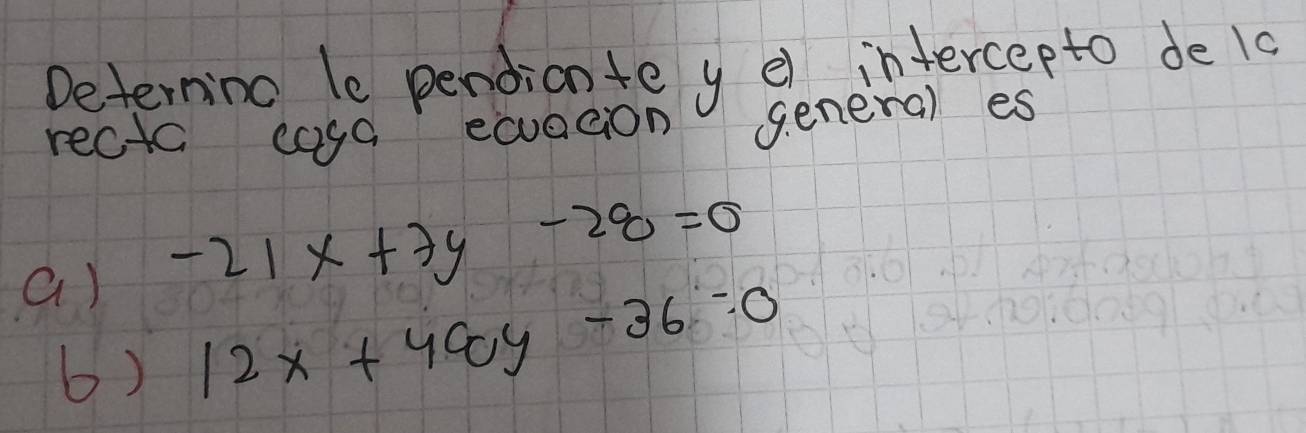 Determina la pendiente y el intercepto de la
recta cuya ecuación general es
a) -21x + 7y -28 = 0
b) 12x + 48y -36 = 0